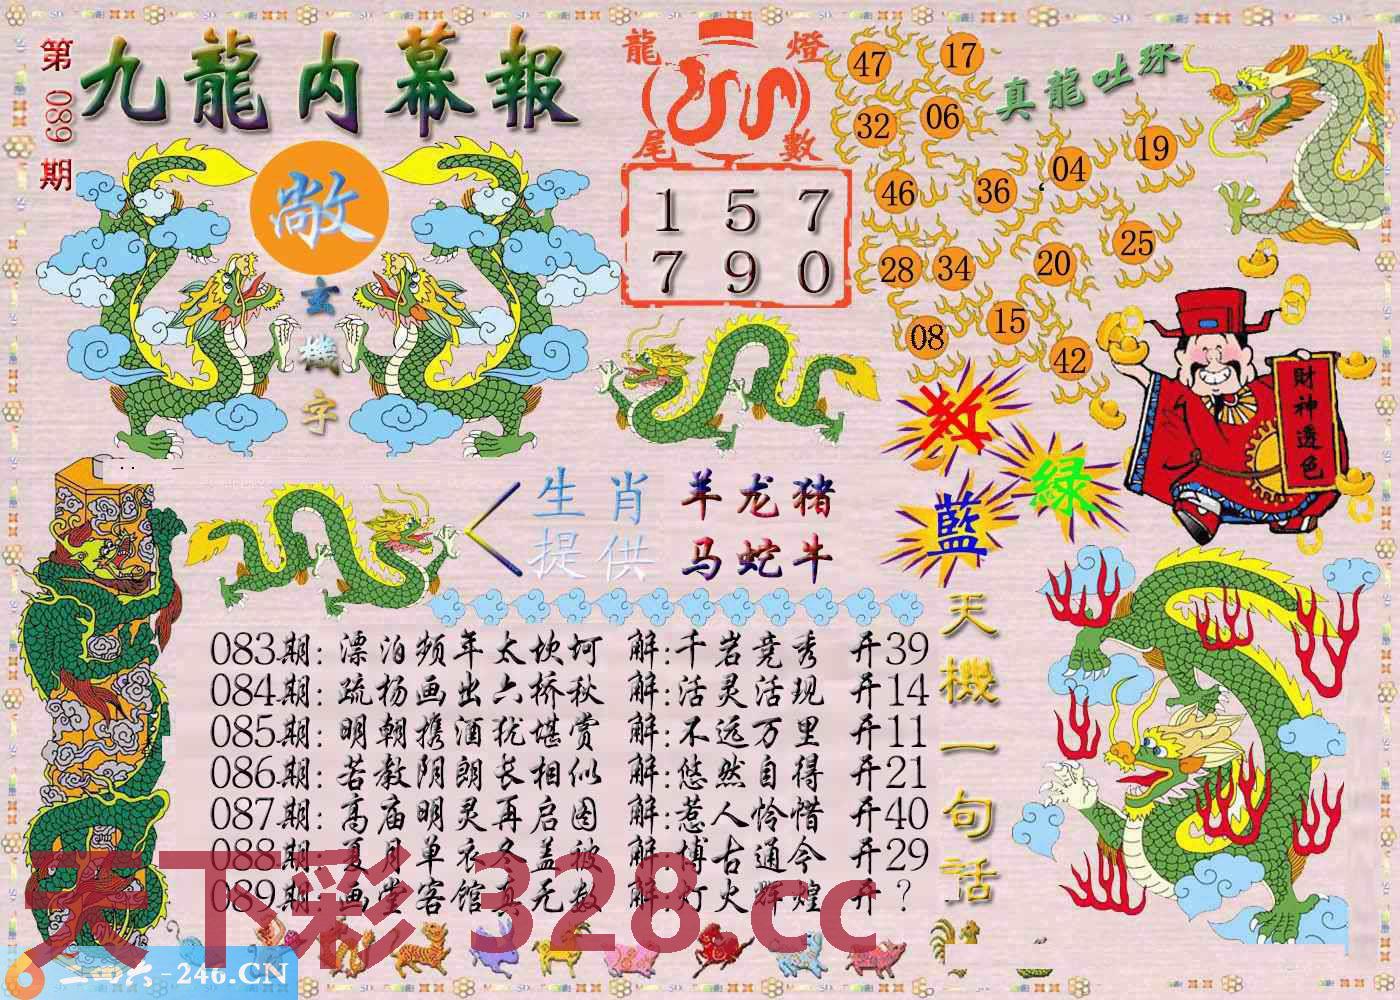 第089期
九龍内幕報
敞
玄機字
龍燈
尾數
1 5 7
7 9 0
真龍吐珠
47 17
32 06
46 36 04 19
28 34 20 25
08 15 42
財神透色
紅
綠
藍
生肖 羊龙猪
提供 马蛇牛
天機一句話
083期: 漂泊频年太坎坷 解:千岩竞秀 开39
084期: 疏杨画出六桥秋 解:活灵活现 开14
085期: 明朝携酒犹堪赏 解:不远万里 开11
086期: 若教阴朗长相似 解:悠然自得 开21
087期: 高庙明灵再启图 解:惹人怜惜 开40
088期: 夏月单衣冬盖被 解:博古通今 开29
089期: 画堂客馆真无数 解:灯火辉煌 开?
天下彩 328.cc
二四六-246.CN